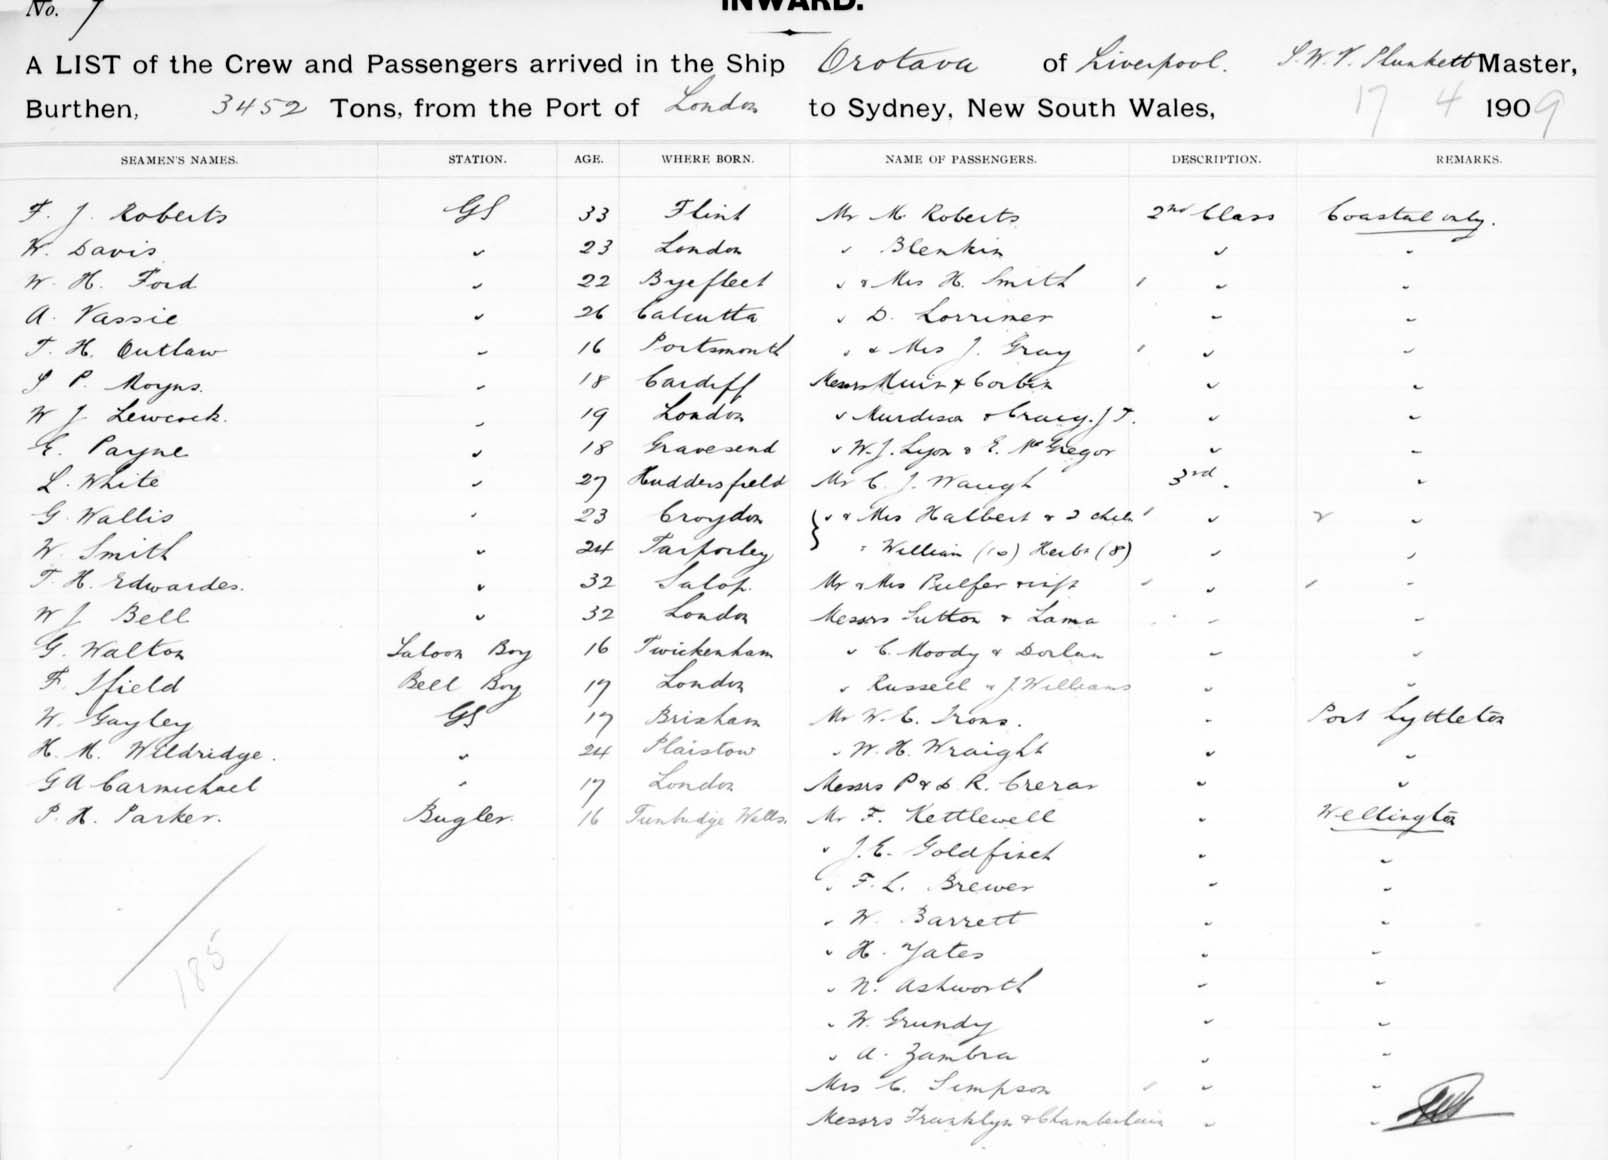 No. 7
INWARD.
A LIST of the Crew and Passengers arrived in the Ship Orotava of Liverpool. Plunkett Master,
Burthen, 3452 Tons, from the Port of London to Sydney, New South Wales, 17 4 1909
SEAMEN'S NAMES. STATION. AGE. WHERE BORN. NAME OF PASSENGERS. DESCRIPTION. REMARKS.
F. J. Roberts GS 33 Flint Mr M. Roberts 2nd Class Coastal only.
W. Davis 23 London " Blenkin " "
W. H. Ford " 22 Byefleet " & Mrs H. Smith 1 " "
A. Vassie " 26 Calcutta " D. Lorrimer " "
T. H. Outlaw " 16 Portsmouth " & Mrs J. Gray 1 " "
S P. Moyns. " 18 Cardiff Messrs Muir & Corbin " "
W J Lewcock. " 19 London " Murdison & Craig. J T. " "
E. Payne " 18 Gravesend " W. J. Lyon & E. McGregor " "
L. White " 27 Huddersfield Mr C. J. Waugh 3rd " "
G. Wallis " 23 Croydon " & Mrs Halbert & 2 chil 1 " 2 "
W. Smith " 24 Tarporley " William (10) Herbt (8) " "
T. H. Edwardes. " 32 Salop. Mr & Mrs Pulfer & inft 1 " 1 "
W J Bell " 32 London Messrs Sutton & Lama " "
G. Walton Saloon Boy 16 Twickenham " C. Moody & Dorlan " "
F. Ifield Bell Boy 17 London " Russell & J. Williams " "
W. Gayley GS 17 Brixham Mr W. E. Irons. " Port Lyttleton
H. M. Wildridge. " 24 Plaistow " W. H. Wraight " "
G A Carmichael " 17 London Messrs P & D. R. Crerar " "
P. H. Parker. Bugler. 16 Tunbridge Wells. Mr F. Kettlewell " Wellington
" J. E. Goldfinch " "
" F. L. Brewer " "
" W. Barrett " "
" H. Yates " "
" N. Ashworth " "
" W. Grundy " "
" A. Zambra " "
Mrs C. Simpson 1 " "
Messrs Franklyn & Chamberlain " "
185